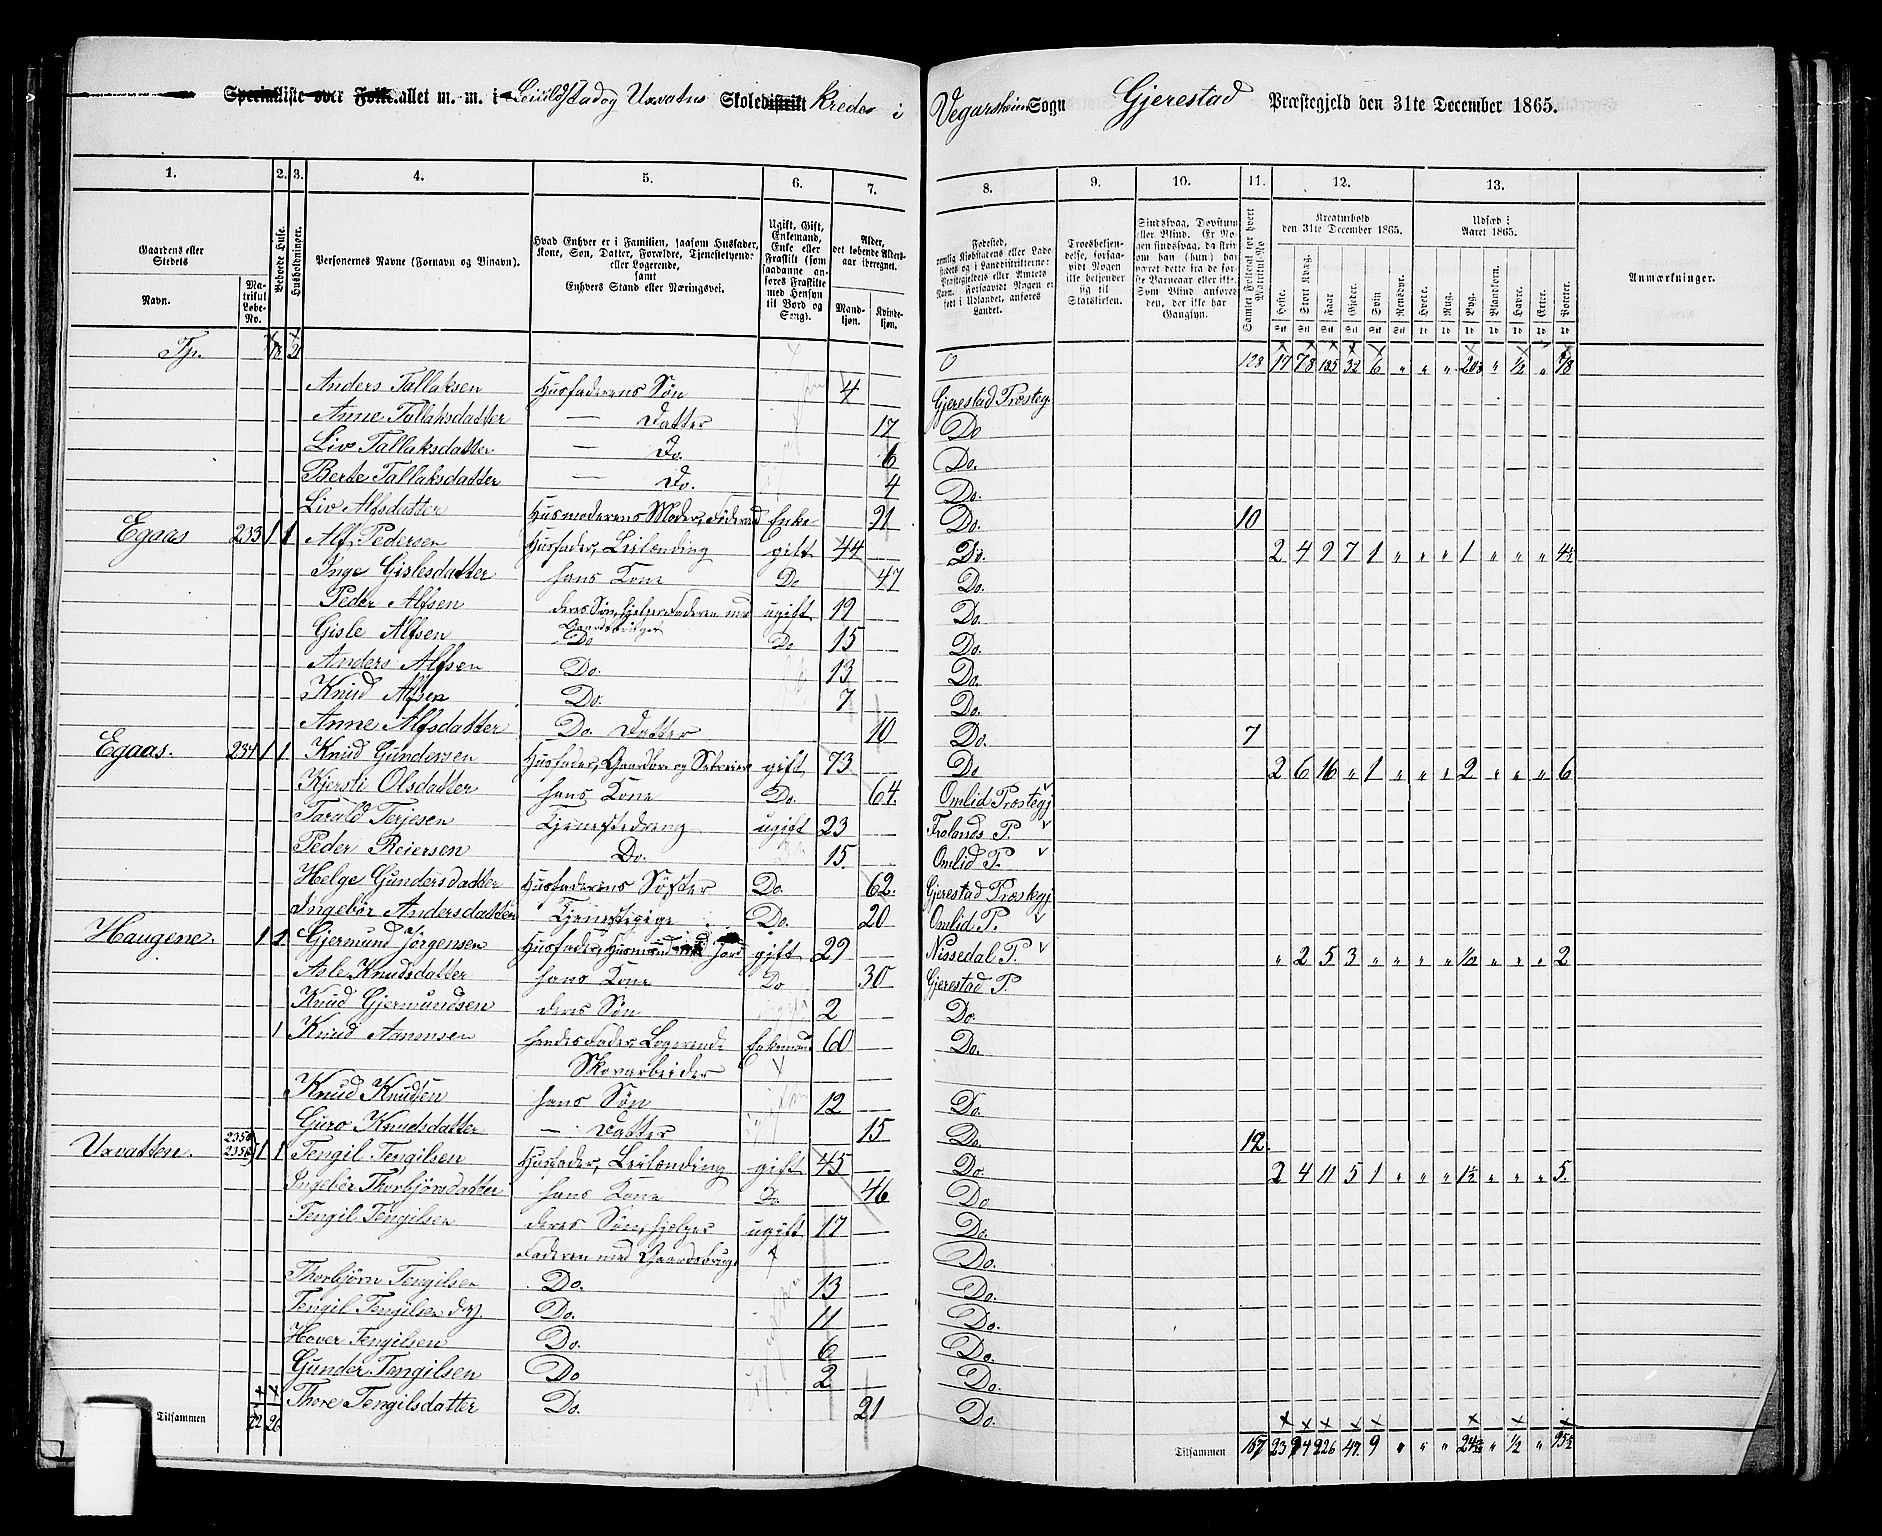 Specialliste over Folketallet m. m. i Skoledistrikt Kreds i Vegarsheien Sogn Gjerestad Præstegjeld den 31te December 1865.
1. 2. 3. 4. 5. 6. 7. 8. 9. 10. 11. 12. 13.
Gaardens eller Stedets
Navn.
Matrikul Løbe-No.
Beboede Huse.
Husholdninger.
Personernes Navne (Fornavn og Binavn).
Hvad Enhver er i Familien, saasom Husfader, Kone, Søn, Datter, Forældre, Tjenestetyende eller Logerende, samt Enhvers Stand eller Næringsvei.
Ugift, Gift, Enkemand, Enke eller Fraskilt (som saadanne anføres Fraskilte med Hensyn til Bord og Seng).
Alder, det løbende Aldersaar iberegnet.
Mandkjøn. Kvindekjøn.
Fødested,
Troesbekjendelse, forsaavidt Nogen ikke bekjender sig til Statskirken.
Samlet Folketal for hvert Matrikul-No
Kreaturhold den 31te December 1865.
Udsæd i Aaret 1865.
Anmærkninger.
Heste. Stort Kvæg. Faar. Gjeder. Svin. Rensdyr. Hvede. Rug. Byg. Blandkorn. Havre. Erter. Poteter.
Anders Tallaksen Husfaderens Søn 4 Gjerestad Præsteg.
Anne Tallaksdatter — Datter 17 Do
Liv Tallaksdatter — Do. 6 Do.
Berte Tallaksdatter — Do. 4 Do.
Liv Alfsdatter Husmoderens Moder, Føderaad Enke Do. 10
Egaas 233 1 1 Alf Pedersen Husfader, Leilænding gift 44 Do. 2 4 9 7 1 " " " 1 " " "
Inge Gislesdatter hans Kone Do 47 Do.
Peder Alfsen deres Søn, hjelper Faderen med Gaardsbruget ugift Do.
Gisle Alfsen Do Do 15 Do.
Anders Alfsen Do. 13 Do.
Knud Alfsen Do. 7 Do.
Anne Alfsdatter Do. Datter 10 Do. 7
Egaas. 234 1 1 Knud Gundersen Husfader, Gaardbr. og Selveier gift 73 Do 2 6 16 " 1 " " " 2 " " " 6
Kjersti Olsdatter hans Kone Do. 64. Omlid Præstegj
Tarald Terjesen Tjenestedreng ugift 23 Frolands P.
Peder Reiersen Do. 15 Omlid P.
Helge Gundersdatter Husfaderens Søster Do. 62. Gjerestad Præstegj
Ingebör Andersdatter Tjenestepige Do. 20 Omlid P.
Haugene. 1 1 Gjermund Jörgensen Husfader, Husmand med Jord gift 29 Nissedal P. " 2 5 3 " " " " 1/2 " " " 2
Asle Knudsdatter hans Kone Do 30 Gjerestad P.
Knud Gjermundsen deres Søn 2 Do.
1 Knud Aanonsen hendes Fader, Logerende Enkemand 60 Do.
Skovarbeider
Knud Knudsen hans Søn 12 Do.
Guro Knudsdatter — Datter 15 Do. 12.
Uxvatten. 1 1 Tengil Tengilsen Husfader, Leilænding gift 45 Do. 2 4 11 5 1 " " " 1½ " " " 5.
Ingebör Thorbjörnsdatter hans Kone Do. 46 Do
Tengil Tengilsen deres Søn, hjelper ugift 17 Do.
Faderen med Gaardsbruget Do.
Thorbjörn Tengilsen Do. 13 Do.
Tengil Tengilsen Do. 11 Do.
Hover Tengilsen Do. 6 Do.
Gunder Tengilsen Do 2 Do.
Thore Tengilsdatter Do. 21 Do.
Tilsammen 22 26 Tilsammen 157 23 94 226 47 9 " " " " 1/2 "